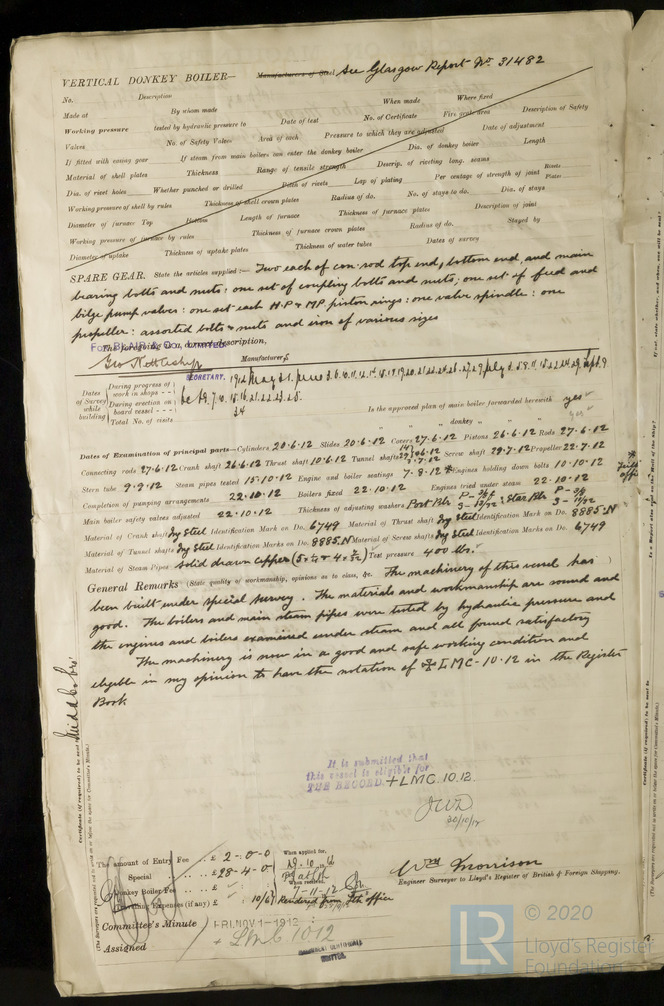 VERTICAL DONKEY BOILER— Manufacturers of Steel See Glasgow Report No. 31482
No. Description
Made at By whom made When made Where fixed
Working pressure tested by hydraulic pressure to Date of test No. of Certificate Fire grate area Description of Safety
Valves No. of Safety Valves Area of each Pressure to which they are adjusted Date of adjustment
If fitted with easing gear If steam from main boilers can enter the donkey boiler Dia. of donkey boiler Length
Material of shell plates Thickness Range of tensile strength Descrip. of riveting long. seams
Dia. of rivet holes Whether punched or drilled Pitch of rivets Lap of plating Per centage of strength of joint Rivets Plates
Working pressure of shell by rules Thickness of shell crown plates Radius of do. No. of stays to do. Dia. of stays
Diameter of furnace Top Bottom Length of furnace Thickness of furnace plates Description of joint
Working pressure of furnace by rules Thickness of furnace crown plates Radius of do. Stayed by
Diameter of uptake Thickness of uptake plates Thickness of water tubes Dates of survey
SPARE GEAR. State the articles supplied:— Two each of con-rod top end, bottom end, and main
bearing bolts and nuts: one set of coupling bolts and nuts; one set of feed and
bilge pump valves: one set each H.P & MP piston rings: one valve spindle: one
propeller: assorted bolts & nuts and iron of various sizes
The foregoing is a correct description,
For BLAIR & Co., LIMITED.
Geo Nettleship Manufacturer,
SECRETARY.
Dates of Survey while building
During progress of work in shops - - 1912 May
During erection on board vessel - - - Oct
Total No. of visits 34
Is the approved plan of main boiler forwarded herewith yes
" " " donkey " " "
Dates of Examination of principal parts—Cylinders 20.6.12 Slides 20.6.12 Covers 27.6.12 Pistons 26.6.12 Rods 27.6.12
Connecting rods 27.6.12 Crank shaft 26.6.12 Thrust shaft 10.6.12 Tunnel shafts Screw shaft 29.7.12 Propeller 22.7.12
Stern tube 9.9.12 Steam pipes tested 15.10.12 Engine and boiler seatings 7.8.12 Engines holding down bolts 10.10.12
Completion of pumping arrangements 22.10.12 Boilers fixed 22.10.12 Engines tried under steam 22.10.12
Main boiler safety valves adjusted 22.10.12 Thickness of adjusting washers Port Blr Star Blr
Material of Crank shaft Ing Steel Identification Mark on Do. 6749 Material of Thrust shaft Ing Steel Identification Mark on Do. 8885.N
Material of Tunnel shafts Ing Steel Identification Marks on Do. 8885.N Material of Screw shafts Ing Steel Identification Marks on Do. 6749
Material of Steam Pipes solid drawn copper Test pressure 400 lbs.
General Remarks (State quality of workmanship, opinions as to class, &c. The machinery of this vessel has
been built under special survey. The materials and workmanship are sound and
good. The boilers and main steam pipes were tested by hydraulic pressure and
the engines and boilers examined under steam and all found satisfactory
The machinery is now in a good and safe working condition and
eligible in my opinion to have the notation of LMC-10.12 in the Register
Book
It is submitted that
this vessel is eligible for
THE RECORD +LMC.10.12.
JWD
30/10/12
The amount of Entry Fee . . £ 2-0-0 When applied for,
Special . . £ 28-4-0
Donkey Boiler Fee . . £ When received,
Travelling Expenses (if any) £ 7-11-12
Wm Morrison
Engineer Surveyor to Lloyd's Register of British & Foreign Shipping.
Committee's Minute FRI. NOV 1-1912
Assigned + LMC 10.12
MACHINERY CERTIFICATE
WRITTEN.
Middlesbro'
Certificate (if required) to be sent to
(The Surveyors are requested not to write on or below the space for Committee's Minute.)
LR © 2020
Lloyd's Register
Foundation